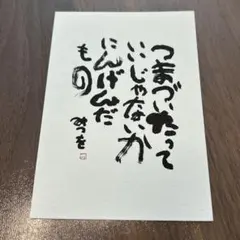 つまづいたって
いいじゃないか
にんげんだ
もの
みつを